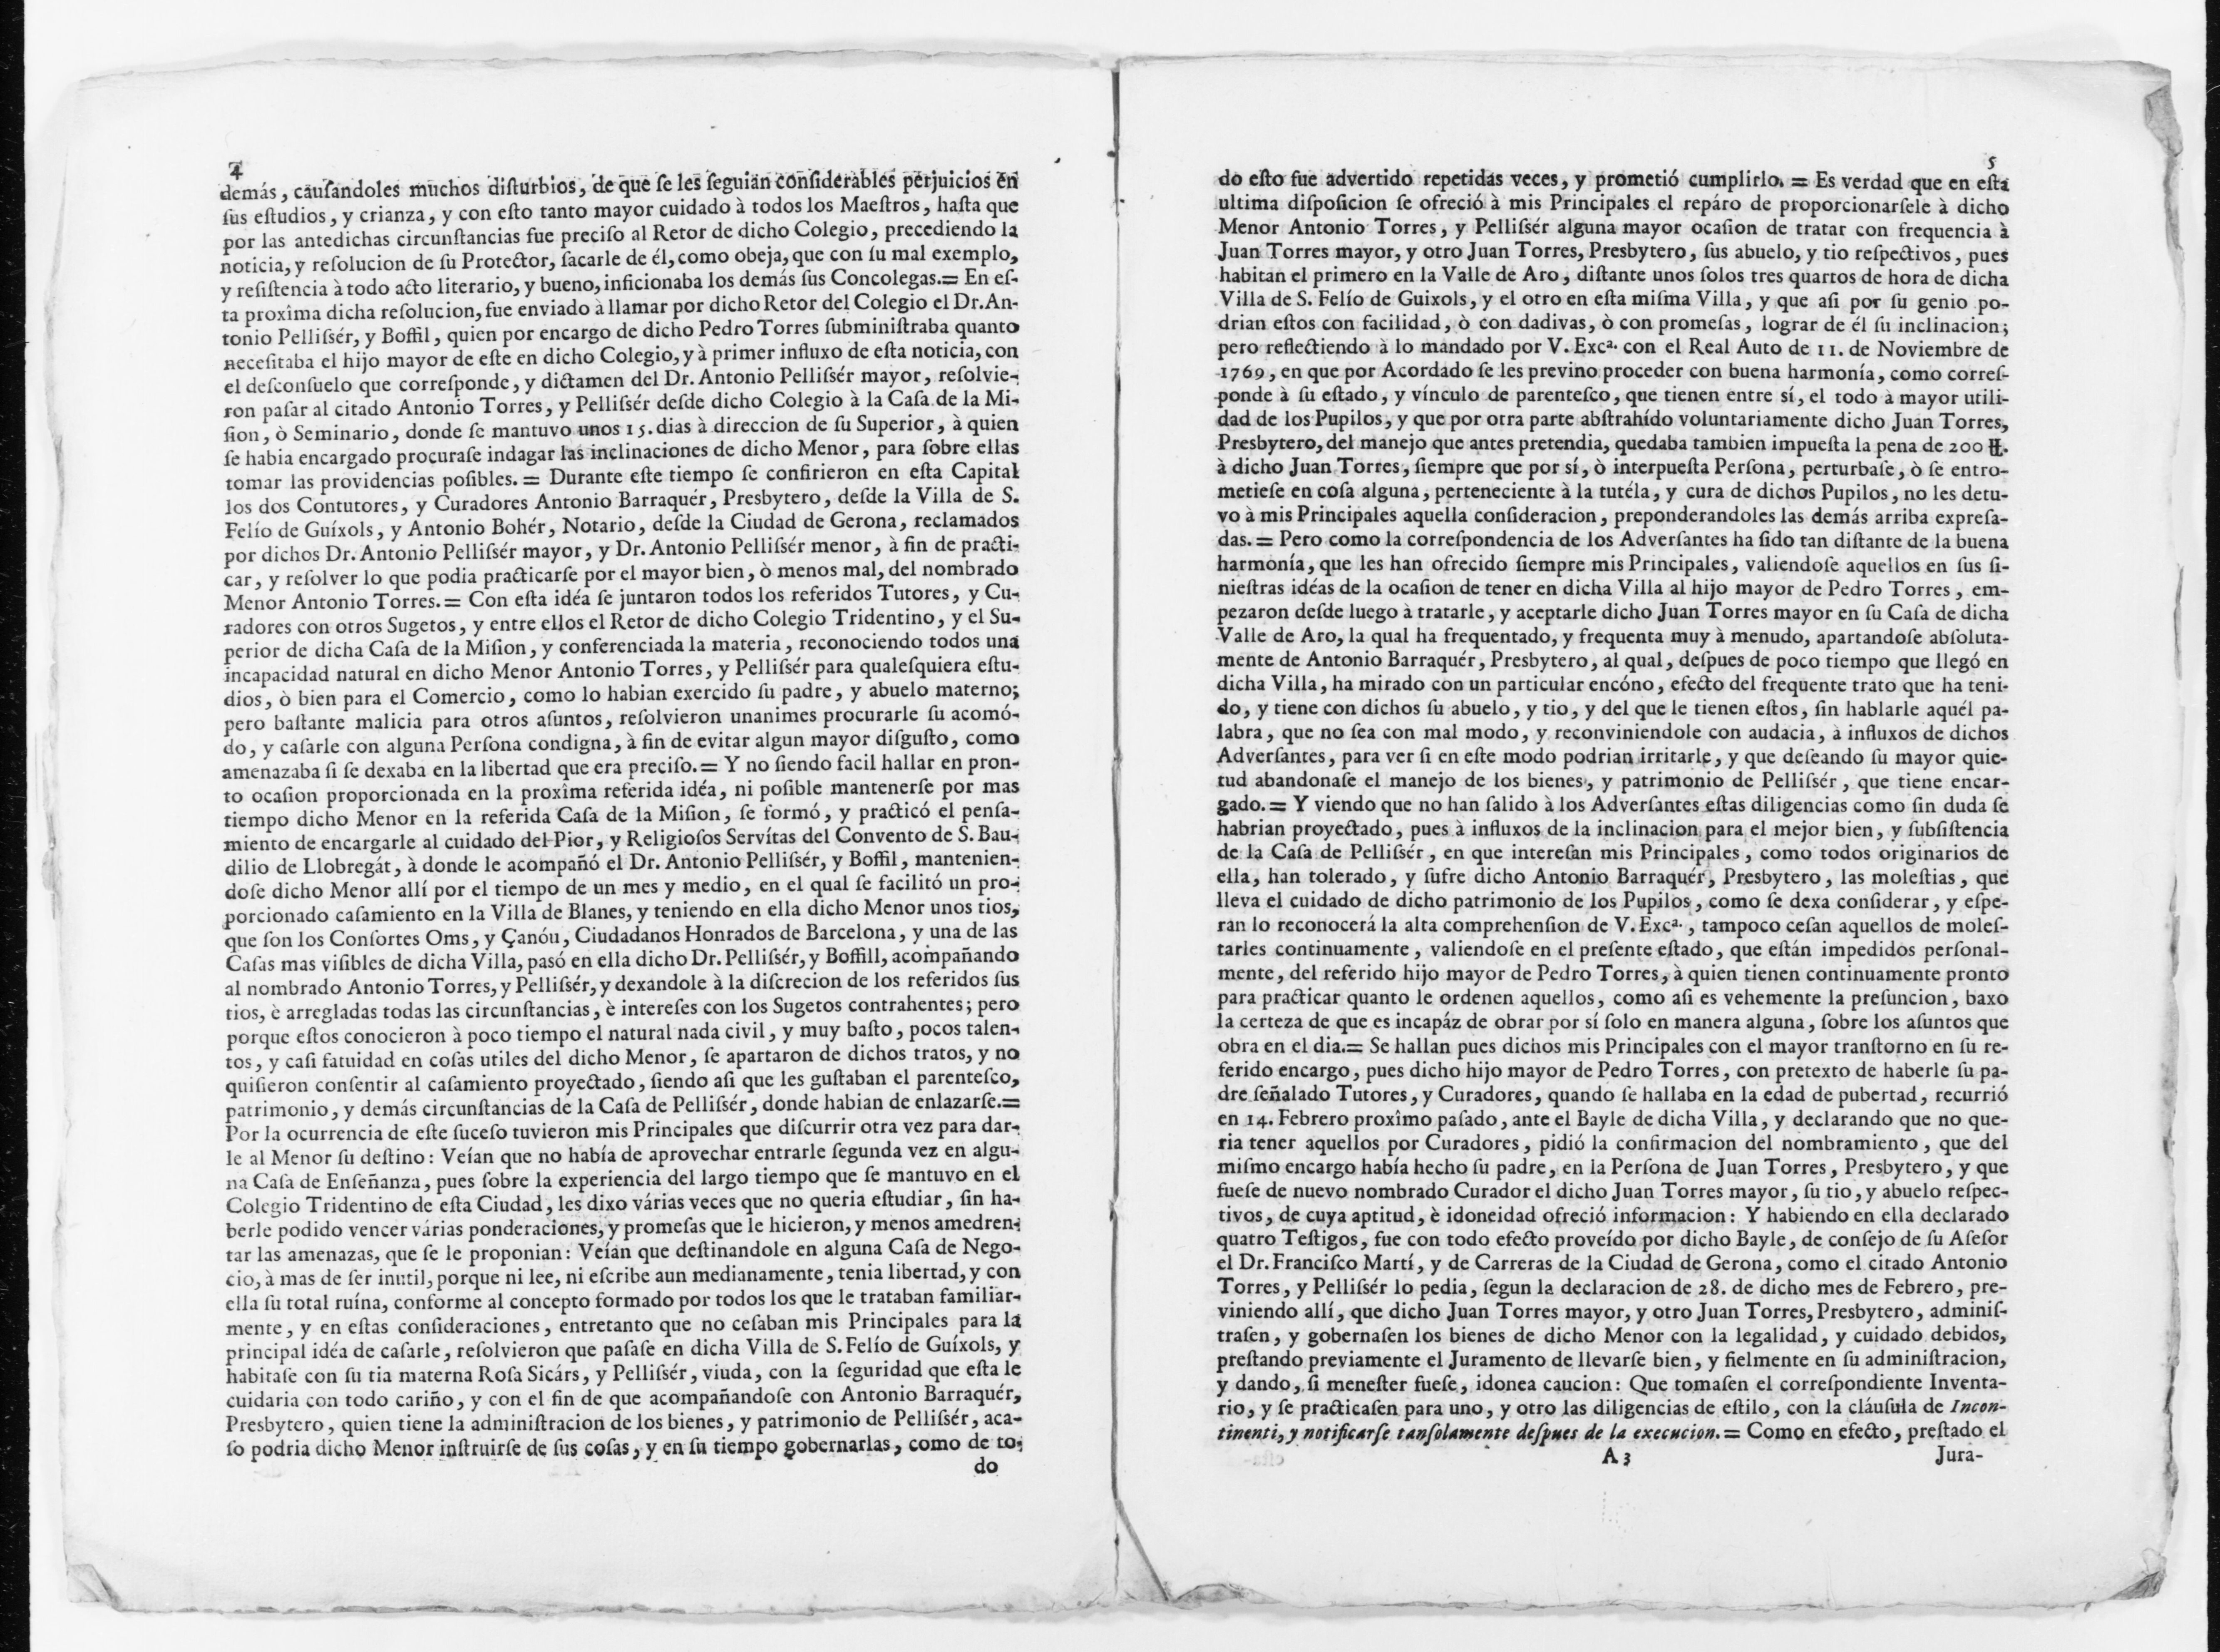 4
demás, cauſandoles muchos diſturbios, de que ſe les ſeguian conſiderables perjuicios en
ſus eſtudios, y crianza, y con eſto tanto mayor cuidado à todos los Maeſtros, haſta que
por las antedichas circunſtancias fue preciſo al Retor de dicho Colegio, precediendo la
noticia, y reſolucion de ſu Protector, ſacarle de él, como obeja, que con ſu mal exemplo,
y reſiſtencia à todo acto literario, y bueno, inficionaba los demás ſus Concolegas.= En eſ-
ta proxîma dicha reſolucion, fue enviado à llamar por dicho Retor del Colegio el Dr. An-
tonio Pelliſsér, y Boffil, quien por encargo de dicho Pedro Torres ſubminiſtraba quanto
neceſitaba el hijo mayor de eſte en dicho Colegio, y à primer influxo de eſta noticia, con
el deſconſuelo que correſponde, y dictamen del Dr. Antonio Pelliſsér mayor, reſolvie-
ron paſar al citado Antonio Torres, y Pelliſsér deſde dicho Colegio à la Caſa de la Mi-
ſion, ò Seminario, donde ſe mantuvo unos 15. dias à direccion de ſu Superior, à quien
ſe habia encargado procuraſe indagar las inclinaciones de dicho Menor, para ſobre ellas
tomar las providencias poſibles. = Durante eſte tiempo ſe confirieron en eſta Capital
los dos Contutores, y Curadores Antonio Barraquér, Presbytero, deſde la Villa de S.
Felío de Guíxols, y Antonio Bohér, Notario, deſde la Ciudad de Gerona, reclamados
por dichos Dr. Antonio Pelliſsér mayor, y Dr. Antonio Pelliſsér menor, à fin de practi-
car, y reſolver lo que podia practicarſe por el mayor bien, ò menos mal, del nombrado
Menor Antonio Torres.= Con eſta idéa ſe juntaron todos los referidos Tutores, y Cu-
radores con otros Sugetos, y entre ellos el Retor de dicho Colegio Tridentino, y el Su-
perior de dicha Caſa de la Miſion, y conferenciada la materia, reconociendo todos una
incapacidad natural en dicho Menor Antonio Torres, y Pelliſsér para qualeſquiera eſtu-
dios, ò bien para el Comercio, como lo habian exercido ſu padre, y abuelo materno;
pero baſtante malicia para otros aſuntos, reſolvieron unanimes procurarle ſu acomó-
do, y caſarle con alguna Perſona condigna, à fin de evitar algun mayor diſguſto, como
amenazaba ſi ſe dexaba en la libertad que era preciſo.= Y no ſiendo facil hallar en pron-
to ocaſion proporcionada en la proxîma referida idéa, ni poſible mantenerſe por mas
tiempo dicho Menor en la referida Caſa de la Miſion, ſe formó, y practicó el penſa-
miento de encargarle al cuidado del Pior, y Religioſos Servítas del Convento de S. Bau-
dilio de Llobregát, à donde le acompañó el Dr. Antonio Pelliſsér, y Boffil, mantenien-
doſe dicho Menor allí por el tiempo de un mes y medio, en el qual ſe facilitó un pro-
porcionado caſamiento en la Villa de Blanes, y teniendo en ella dicho Menor unos tios,
que ſon los Conſortes Oms, y Çanóu, Ciudadanos Honrados de Barcelona, y una de las
Caſas mas viſibles de dicha Villa, pasó en ella dicho Dr. Pelliſsér, y Boffill, acompañando
al nombrado Antonio Torres, y Pelliſsér, y dexandole à la diſcrecion de los referidos ſus
tios, è arregladas todas las circunſtancias, è intereſes con los Sugetos contrahentes; pero
porque eſtos conocieron à poco tiempo el natural nada civil, y muy baſto, pocos talen-
tos, y caſi fatuidad en coſas utiles del dicho Menor, ſe apartaron de dichos tratos, y no
quiſieron conſentir al caſamiento proyectado, ſiendo aſi que les guſtaban el parenteſco,
patrimonio, y demás circunſtancias de la Caſa de Pelliſsér, donde habian de enlazarſe.=
Por la ocurrencia de eſte ſuceſo tuvieron mis Principales que diſcurrir otra vez para dar-
le al Menor ſu deſtino: Veían que no había de aprovechar entrarle ſegunda vez en algu-
na Caſa de Enſeñanza, pues ſobre la experiencia del largo tiempo que ſe mantuvo en el
Colegio Tridentino de eſta Ciudad, les dixo várias veces que no queria eſtudiar, ſin ha-
berle podido vencer várias ponderaciones, y promeſas que le hicieron, y menos amedren-
tar las amenazas, que ſe le proponian: Veían que deſtinandole en alguna Caſa de Nego-
cio, à mas de ſer inutil, porque ni lee, ni eſcribe aun medianamente, tenia libertad, y con
ella ſu total ruína, conforme al concepto formado por todos los que le trataban familiar-
mente, y en eſtas conſideraciones, entretanto que no ceſaban mis Principales para la
principal idéa de caſarle, reſolvieron que paſaſe en dicha Villa de S. Felío de Guíxols, y
habitaſe con ſu tia materna Roſa Sicárs, y Pelliſsér, viuda, con la ſeguridad que eſta le
cuidaria con todo cariño, y con el fin de que acompañandoſe con Antonio Barraquér,
Presbytero, quien tiene la adminiſtracion de los bienes, y patrimonio de Pelliſsér, aca-
ſo podria dicho Menor inſtruirſe de ſus coſas, y en ſu tiempo gobernarlas, como de to-
do
5
do eſto fue advertido repetidas veces, y prometió cumplirlo. = Es verdad que en eſta
ultima diſpoſicion ſe ofreció à mis Principales el repáro de proporcionarſele à dicho
Menor Antonio Torres, y Pelliſsér alguna mayor ocaſion de tratar con frequencia à
Juan Torres mayor, y otro Juan Torres, Presbytero, ſus abuelo, y tio reſpectivos, pues
habitan el primero en la Valle de Aro, diſtante unos ſolos tres quartos de hora de dicha
Villa de S. Felío de Guixols, y el otro en eſta miſma Villa, y que aſi por ſu genio po-
drian eſtos con facilidad, ò con dadivas, ò con promeſas, lograr de él ſu inclinacion;
pero reflectiendo à lo mandado por V. Excª. con el Real Auto de 11. de Noviembre de
1769, en que por Acordado ſe les previno proceder con buena harmonía, como correſ-
ponde à ſu eſtado, y vínculo de parenteſco, que tienen entre sí, el todo à mayor utili-
dad de los Pupilos, y que por otra parte abſtrahído voluntariamente dicho Juan Torres,
Presbytero, del manejo que antes pretendia, quedaba tambien impueſta la pena de 200 ℔.
à dicho Juan Torres, ſiempre que por sí, ò interpueſta Perſona, perturbaſe, ò ſe entro-
metieſe en coſa alguna, perteneciente à la tutéla, y cura de dichos Pupilos, no les detu-
vo à mis Principales aquella conſideracion, preponderandoles las demás arriba expreſa-
das. = Pero como la correſpondencia de los Adverſantes ha ſido tan diſtante de la buena
harmonía, que les han ofrecido ſiempre mis Principales, valiendoſe aquellos en ſus ſi-
nieſtras idéas de la ocaſion de tener en dicha Villa al hijo mayor de Pedro Torres, em-
pezaron deſde luego à tratarle, y aceptarle dicho Juan Torres mayor en ſu Caſa de dicha
Valle de Aro, la qual ha frequentado, y frequenta muy à menudo, apartandoſe abſoluta-
mente de Antonio Barraquér, Presbytero, al qual, deſpues de poco tiempo que llegó en
dicha Villa, ha mirado con un particular encóno, efecto del frequente trato que ha teni-
do, y tiene con dichos ſu abuelo, y tio, y del que le tienen eſtos, ſin hablarle aquél pa-
labra, que no ſea con mal modo, y reconviniendole con audacia, à influxos de dichos
Adverſantes, para ver ſi en eſte modo podrian irritarle, y que deſeando ſu mayor quie-
tud abandonaſe el manejo de los bienes, y patrimonio de Pelliſsér, que tiene encar-
gado. = Y viendo que no han ſalido à los Adverſantes eſtas diligencias como ſin duda ſe
habrian proyectado, pues à influxos de la inclinacion para el mejor bien, y ſubſiſtencia
de la Caſa de Pelliſsér, en que intereſan mis Principales, como todos originarios de
ella, han tolerado, y ſufre dicho Antonio Barraquér, Presbytero, las moleſtias, que
lleva el cuidado de dicho patrimonio de los Pupilos, como ſe dexa conſiderar, y eſpe-
ran lo reconocerá la alta comprehenſion de V. Excª., tampoco ceſan aquellos de moleſ-
tarles continuamente, valiendoſe en el preſente eſtado, que eſtán impedidos perſonal-
mente, del referido hijo mayor de Pedro Torres, à quien tienen continuamente pronto
para practicar quanto le ordenen aquellos, como aſi es vehemente la preſuncion, baxo
la certeza de que es incapáz de obrar por sí ſolo en manera alguna, ſobre los aſuntos que
obra en el dia.= Se hallan pues dichos mis Principales con el mayor tranſtorno en ſu re-
ferido encargo, pues dicho hijo mayor de Pedro Torres, con pretexto de haberle ſu pa-
dre ſeñalado Tutores, y Curadores, quando ſe hallaba en la edad de pubertad, recurrió
en 14. Febrero proxîmo paſado, ante el Bayle de dicha Villa, y declarando que no que-
ria tener aquellos por Curadores, pidió la confirmacion del nombramiento, que del
miſmo encargo había hecho ſu padre, en la Perſona de Juan Torres, Presbytero, y que
fueſe de nuevo nombrado Curador el dicho Juan Torres mayor, ſu tio, y abuelo reſpec-
tivos, de cuya aptitud, è idoneidad ofreció informacion: Y habiendo en ella declarado
quatro Teſtigos, fue con todo efecto proveído por dicho Bayle, de conſejo de ſu Aſeſor
el Dr. Franciſco Martí, y de Carreras de la Ciudad de Gerona, como el citado Antonio
Torres, y Pelliſsér lo pedia, ſegun la declaracion de 28. de dicho mes de Febrero, pre-
viniendo allí, que dicho Juan Torres mayor, y otro Juan Torres, Presbytero, adminiſ-
traſen, y gobernaſen los bienes de dicho Menor con la legalidad, y cuidado debidos,
preſtando previamente el Juramento de llevarſe bien, y fielmente en ſu adminiſtracion,
y dando, ſi meneſter fueſe, idonea caucion: Que tomaſen el correſpondiente Inventa-
rio, y ſe practicaſen para uno, y otro las diligencias de eſtilo, con la cláuſula de Incon-
tinenti, y notificarſe tanſolamente deſpues de la execucion. = Como en efecto, preſtado el
A 3
Jura-